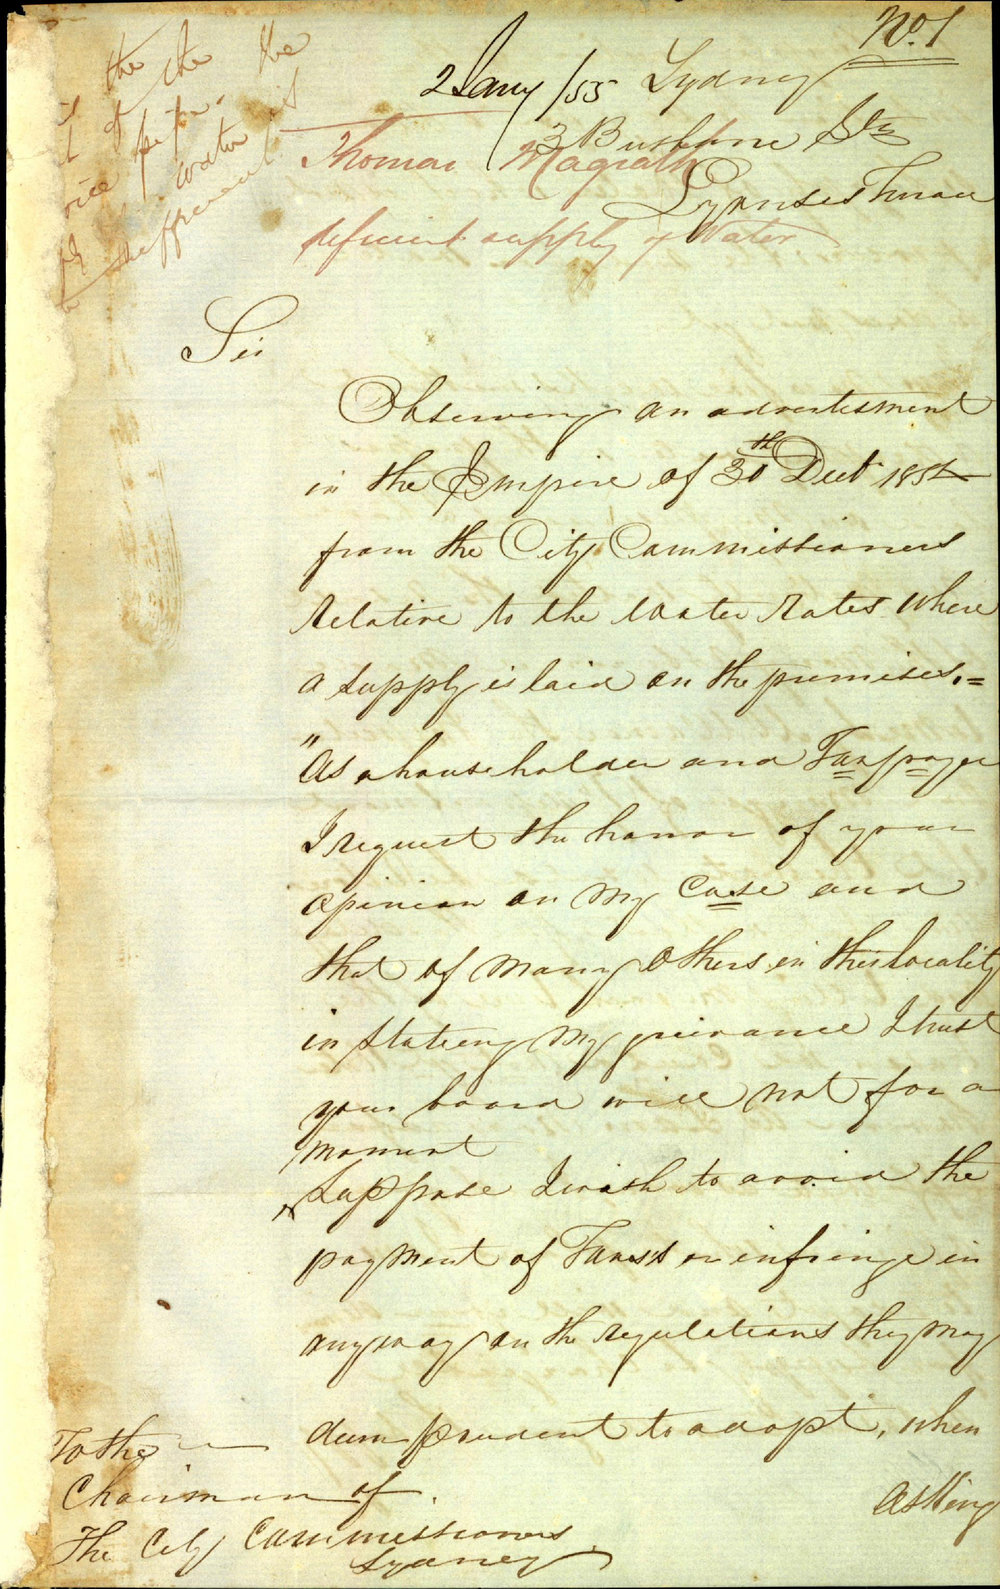 No. 1
2 Jany /55 Sydney
3 Bushhne Stn
Lyonses Terrace
Thomas Magrath
deficient supply of Water
the the
of the
water is
sufficient
Sir
Observing an advertisment
in the Empire of 30th Decbr 1854
from the City Commissioners
relative to the Water Rates Where
a supply is laid on the premises.=
"As a house holder and Taxpayer
I request the honor of your
opinion on my Case and
that of many others in this locality
in stateing my grievance I trust
your board will not for a
moment
suppose I wish to avoid the
payment of Taxes or infringe in
anyway on the regulations they may
deem prudent to adopt, when
asking
To the
Chairman of
The City Commissioners
Sydney